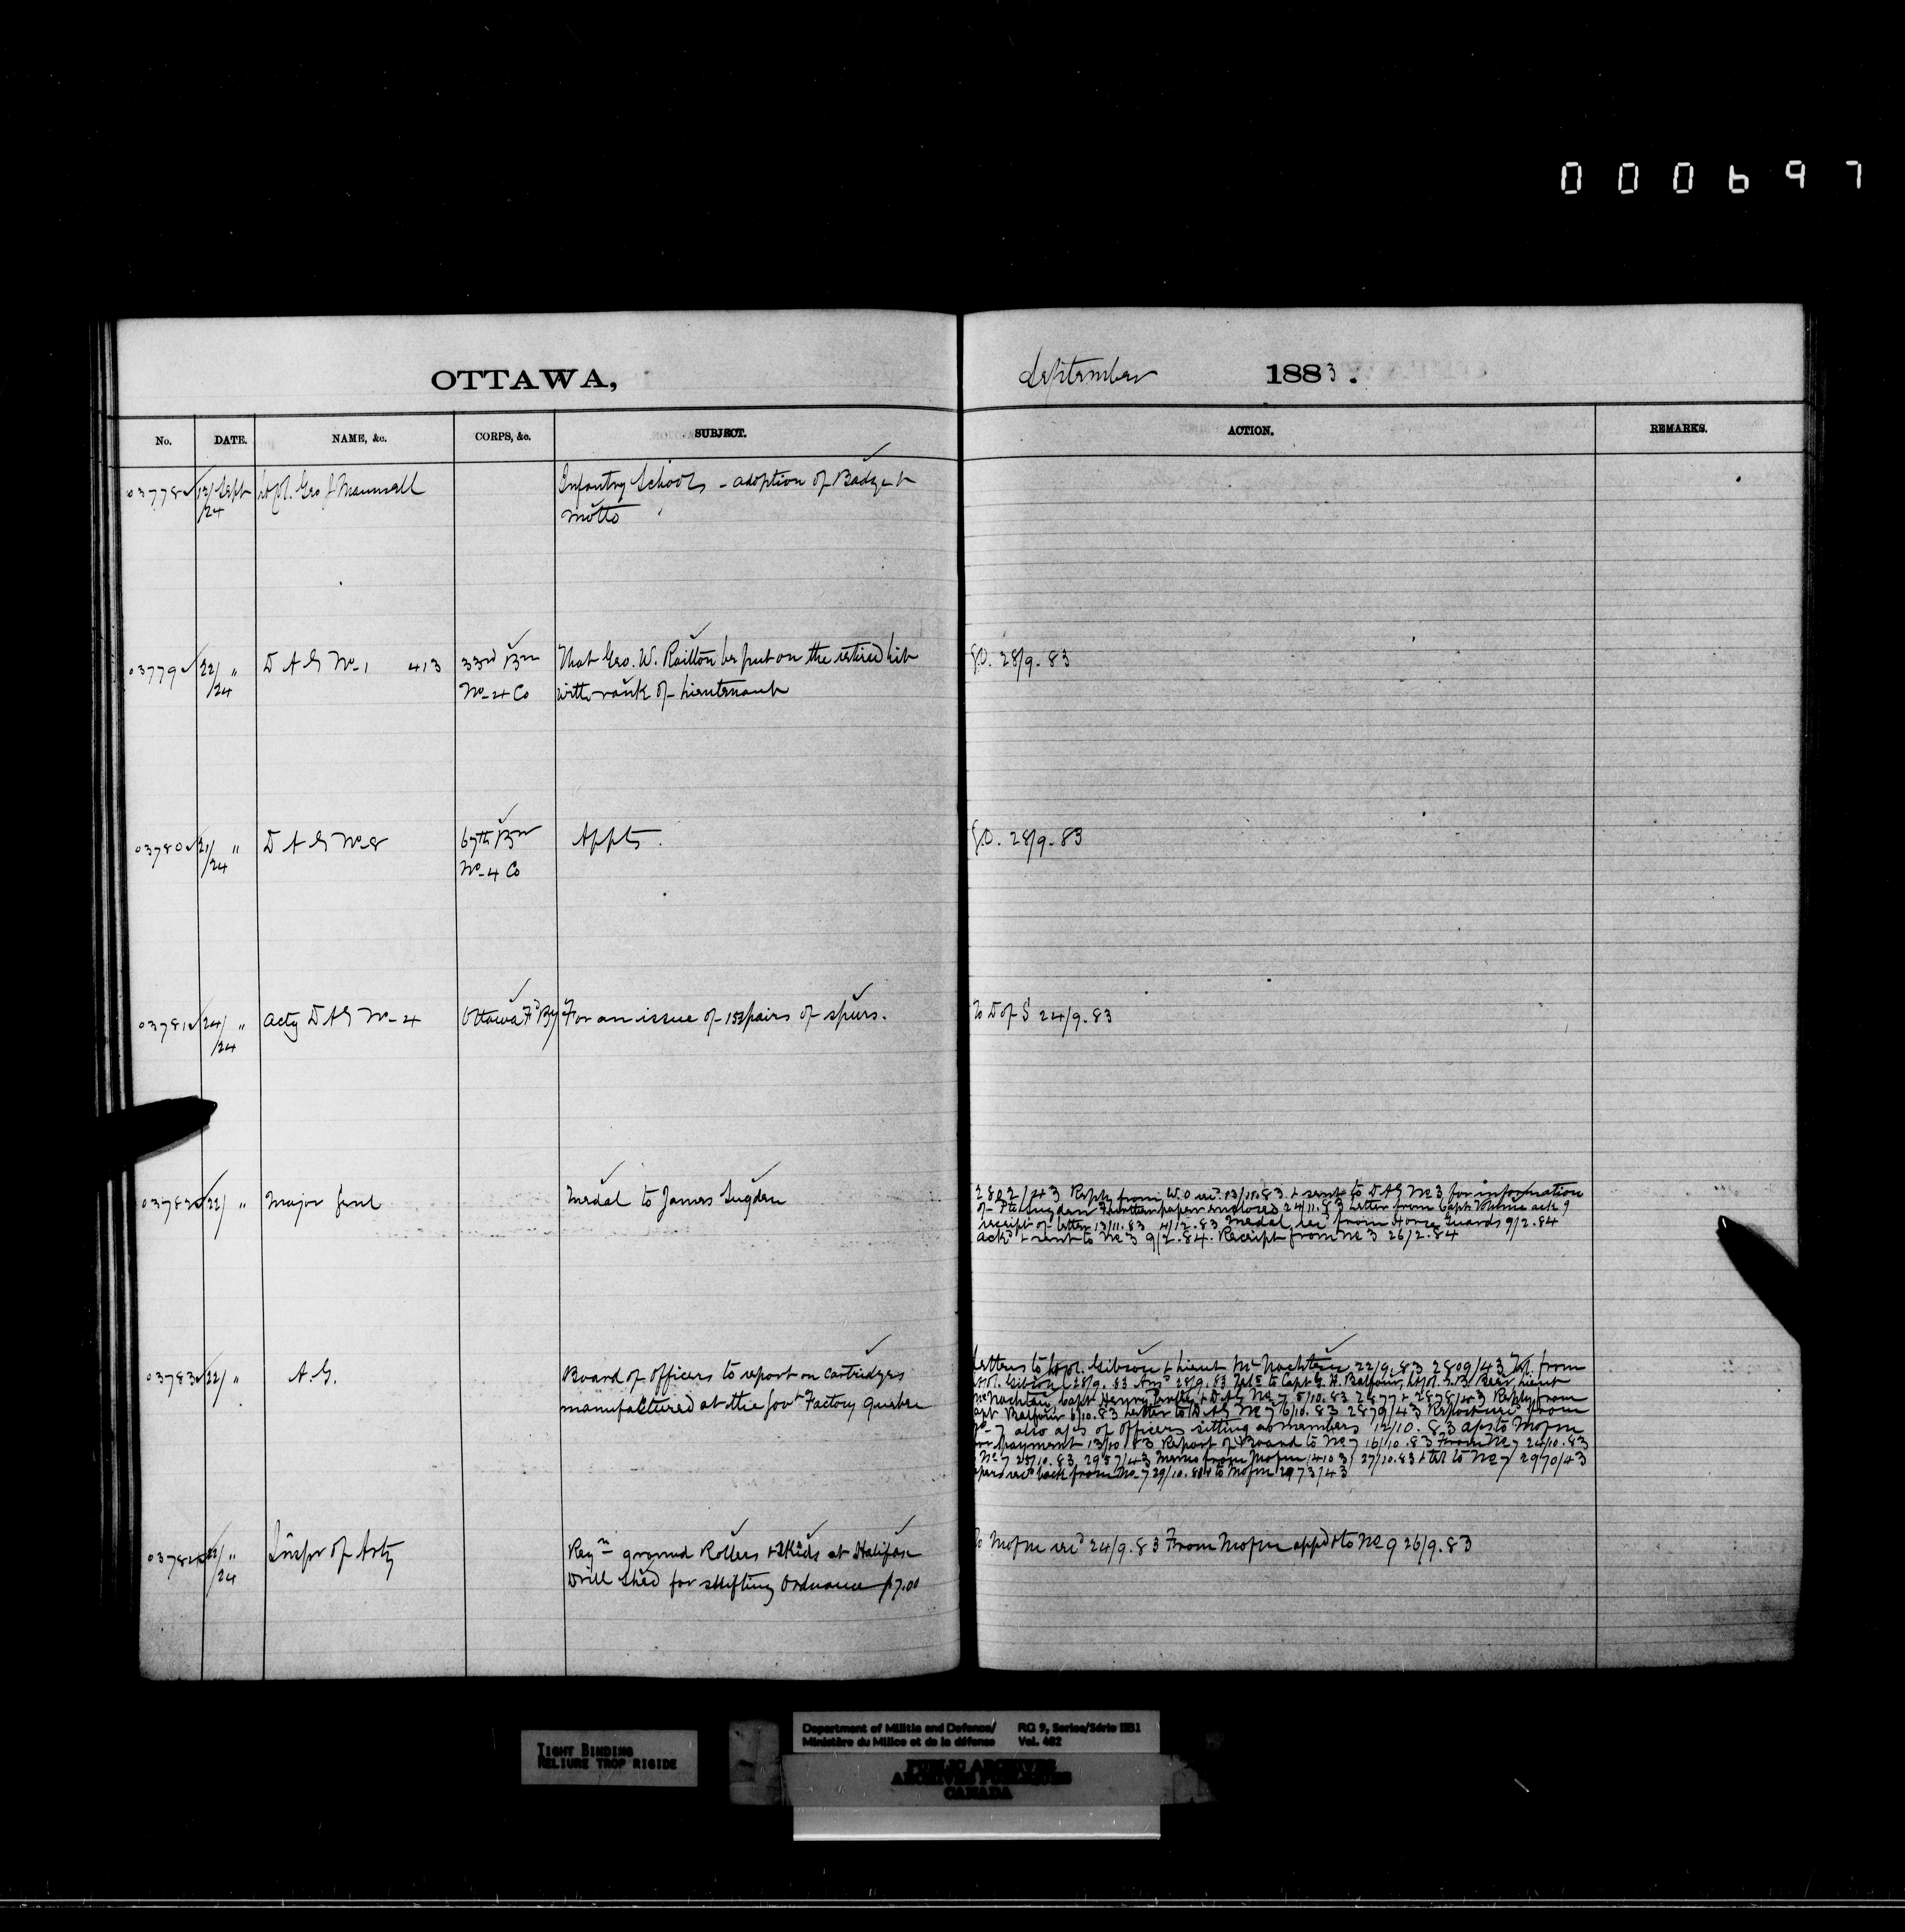 000697
OTTAWA,
September 1883.
No. DATE. NAME, &c. CORPS, &c. SUBJECT. ACTION. REMARKS.
03778 12/ Sept Lt Col. Geo J Maunsell Infantry Schools - adoption of Badge &
/24 Motto
03779 22/ " D A G No 1 413 33rd Bn That Geo. W. Railton be put on the retired list G.O. 28/9.83
/24 No 4 Co with rank of Lieutenant
03780 21/ " D A G No 8 67th Bn Appts. G.O. 28/9.83
/24 No 4 Co
03781 24/ " Actg D A G No 4 Ottawa Fd By For an issue of 132 pairs of spurs. To D of S 24/9.83
/24
03782 22/ " Major Genl Medal to James Sugden
2802/43 Reply from W.O recd 13/11.83 & sent to DAG No 3 for information
of Pte Sugden Further paper enclosed 24/11.83 Letter from Capt ack g
receipt of letter 13/11.83 4/12.83 Medal recd from Horse Guards 9/2.84
ackd & sent to No 3 9/2.84. Receipt from No 3 26/2.84
03783 22/ " A.G. Board of officers to report on cartridges
manufactured at the Govt Factory Quebec
Letters to Lt Col. Gibson & Lieut McNachtan 22/9.83 2809/43 Tel. from
Col. Gibson 28/9.83 Ansd 28/9.83 Tels to Capt G. H. Balfour, Lt Col. Lieut
McNachtan, Capt Henry & DAG No 7 5/10.83 2877 & 2878/43 Reply from
Capt Balfour 6/10.83 Letter to DAG No 7 6/10.83 2879/43 Report recd from
No 7 also a/cs of officers sitting as members 12/10.83 a/cs to MofM
for payment 13/10 83 Report of Board to No 7 16/10.83 From No 7 24/10.83
No 7 25/10.83 2957/43 Memo from MofM 27/10.83 & tel to No 7 2970/43
papers recd back from No 7 29/10.83 & to MofM 2973/43
03784 22/ " Inspr of Arty Reqn ground Rollers & Skids at Halifax To MofM recd 24/9.83 From MofM appd & to No 9 26/9.83
/24 Drill Shed for shifting Ordnance $7.00
TIGHT BINDING
RELIURE TROP RIGIDE
Department of Militia and Defence/ RG 9, Series/Série IIB1
Ministère du Milice et de la défense Vol. 482
PUBLIC ARCHIVES
ARCHIVES PUBLIQUES
CANADA